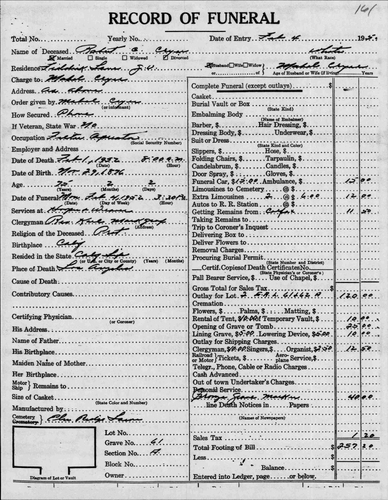 RECORD OF FUNERAL
161
Total No. Yearly No. Date of Entry Feb 4 195
Name of Deceased Robert C. Cryer White
Married Single Widowed Divorced (What Race)
Residence
Husband Wife Widow of Mabel Cryer
Age of Husband or Wife (if living) Years
Charge to Mabel Cryer
Address As Above
Order given by Mabel Cryer
(or Informant)
How Secured Phone
If Veteran, State War No
Occupation
(Social Security Number)
Employer and Address
Date of Death Feb 1, 1952 8:00 a.m.
(Hour)
Date of Birth Nov 29, 1876
Age: 75 2 2
(Years) (Months) (Days)
Date of Funeral Mon. Feb 4, 1952 3:30 P.M.
Services at
Clergyman Rev.
Religion of the Deceased Prot
Birthplace
Resided in the State
(In U.S. or City or County) (Years) (Months)
Place of Death Los Angeles
Cause of Death
Contributory Causes
Certifying Physician
(or Coroner)
His Address
Name of Father
His Birthplace
Maiden Name of Mother
Her Birthplace
Motor Ship Remains to
Size of Casket
(State Color and Number)
Manufactured by
Cemetery Crematory
Lot No.
Grave No. 61
Section No. A
Block No.
Owner
Diagram of Lot or Vault
Complete Funeral (except outlays) $
Casket
Burial Vault or Box
(State Kind)
Embalming Body
(Name of Embalmer)
Barber, Hair Dressing, $
Dressing Body, $ Underwear, $
Suit or Dress
(State Kind and Color)
Slippers, $ Hose, $
Folding Chairs, $ Tarpaulin, $
Candelabrum, $ Candles, $
Door Spray, $ Gloves, $
Funeral Car, $ Ambulance, $ 15 00
Limousines to Cemetery @ $
Extra Limousines 2 @ $ 6.00 12 00
Autos to R. R. Station @ $
Getting Remains from 11 50
Taking Remains to
Trip to Coroner's Inquest
Delivering Box to
Deliver Flowers to
Removal Charges
Procuring Burial Permit
(State Number and District)
Certif. Copies of Death Certificates No.
(State Physician's or Coroner's)
Pall Bearer Service, $ Use of Chapel, $
Gross Total for Sales Tax $
Outlay for Lot 120 00
Cremation
Flowers, $ Palms, $ Matting, $
Rental of Tent, $ Temporary Vault, $ 10 00
Opening of Grave or Tomb 25 00
Lining Grave, $ Lowering Device, $ 10 00
Outlay for Shipping Charges
Clergyman, $ Singers, $ Organist, $ 12 50
Railroad Motor Tickets, $ Aeroplane Service, $
Telegr., Phone, Cable or Radio Charges
Cash Advanced
Out of town Undertaker's Charges
Personal Service
Bronze Grave Marker 40 00
line Death Notices in Papers
Sales Tax $ 1 20
Total Footing of Bill $ 257 20
Less $
Balance $
Entered into Ledger, page or below.